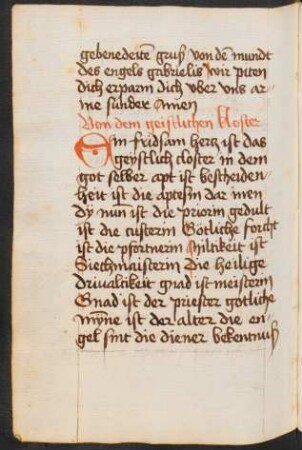 gebenedeite͂ gruß von de͂ mundt
des engels gabrielis wir piten
dich erparm dich vber vns ar¬
me sunder Amen
Von dem geistlichen kloster
Ein fridsam hertz ist das
geystlich closter in dem
got selber apt ist bescheiden¬
heit ist die aptesin dar men
dy nun ist die priorin gedult
ist die custerin Götliche forcht
ist die pförtnerin Miltikeit ist
Siechmaisterin Die heilige
drivaltikeit gnad ist meisterin
Gnad ist der priester götliche
myne ist der alter die en¬
gel sint die diener bekentnuß